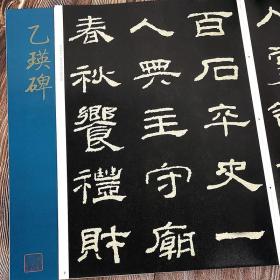 乙瑛碑
百石卒史一
人典主守廟
春秋饗禮財